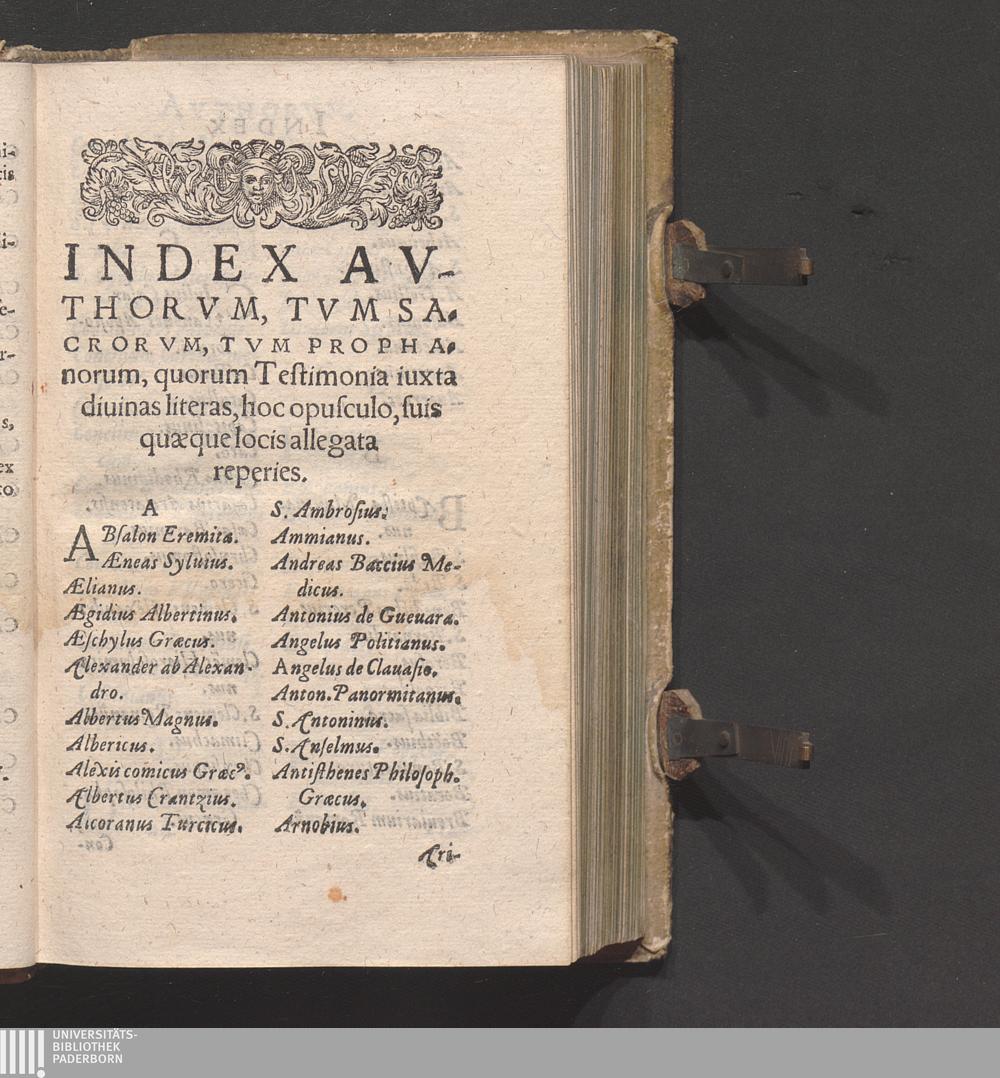 INDEX AV-
THORVM, TVM SA-
CRORVM, TVM PROPHA-
norum, quorum Teſtimonia iuxta
diuinas literas, hoc opuſculo, ſuis
quæque locis allegata
reperies.
A
ABſalon Eremita.
Æneas Syluius.
Ælianus.
Ægidius Albertinus.
Æſchylus Græcus.
Alexander ab Alexan-
dro.
Albertus Magnus.
Albericus.
Alexis comicus Græcꝰ.
Albertus Crantzius.
Alcoranus Turcicus.
S. Ambroſius.
Ammianus.
Andreas Baccius Me-
dicus.
Antonius de Gueuara.
Angelus Politianus.
Angelus de Clauaſio.
Anton. Panormitanus.
S. Antoninus.
S. Anſelmus.
Antiſthenes Philoſoph.
Græcus.
Arnobius.
Ari-
UNIVERSITÄTS-
BIBLIOTHEK
PADERBORN